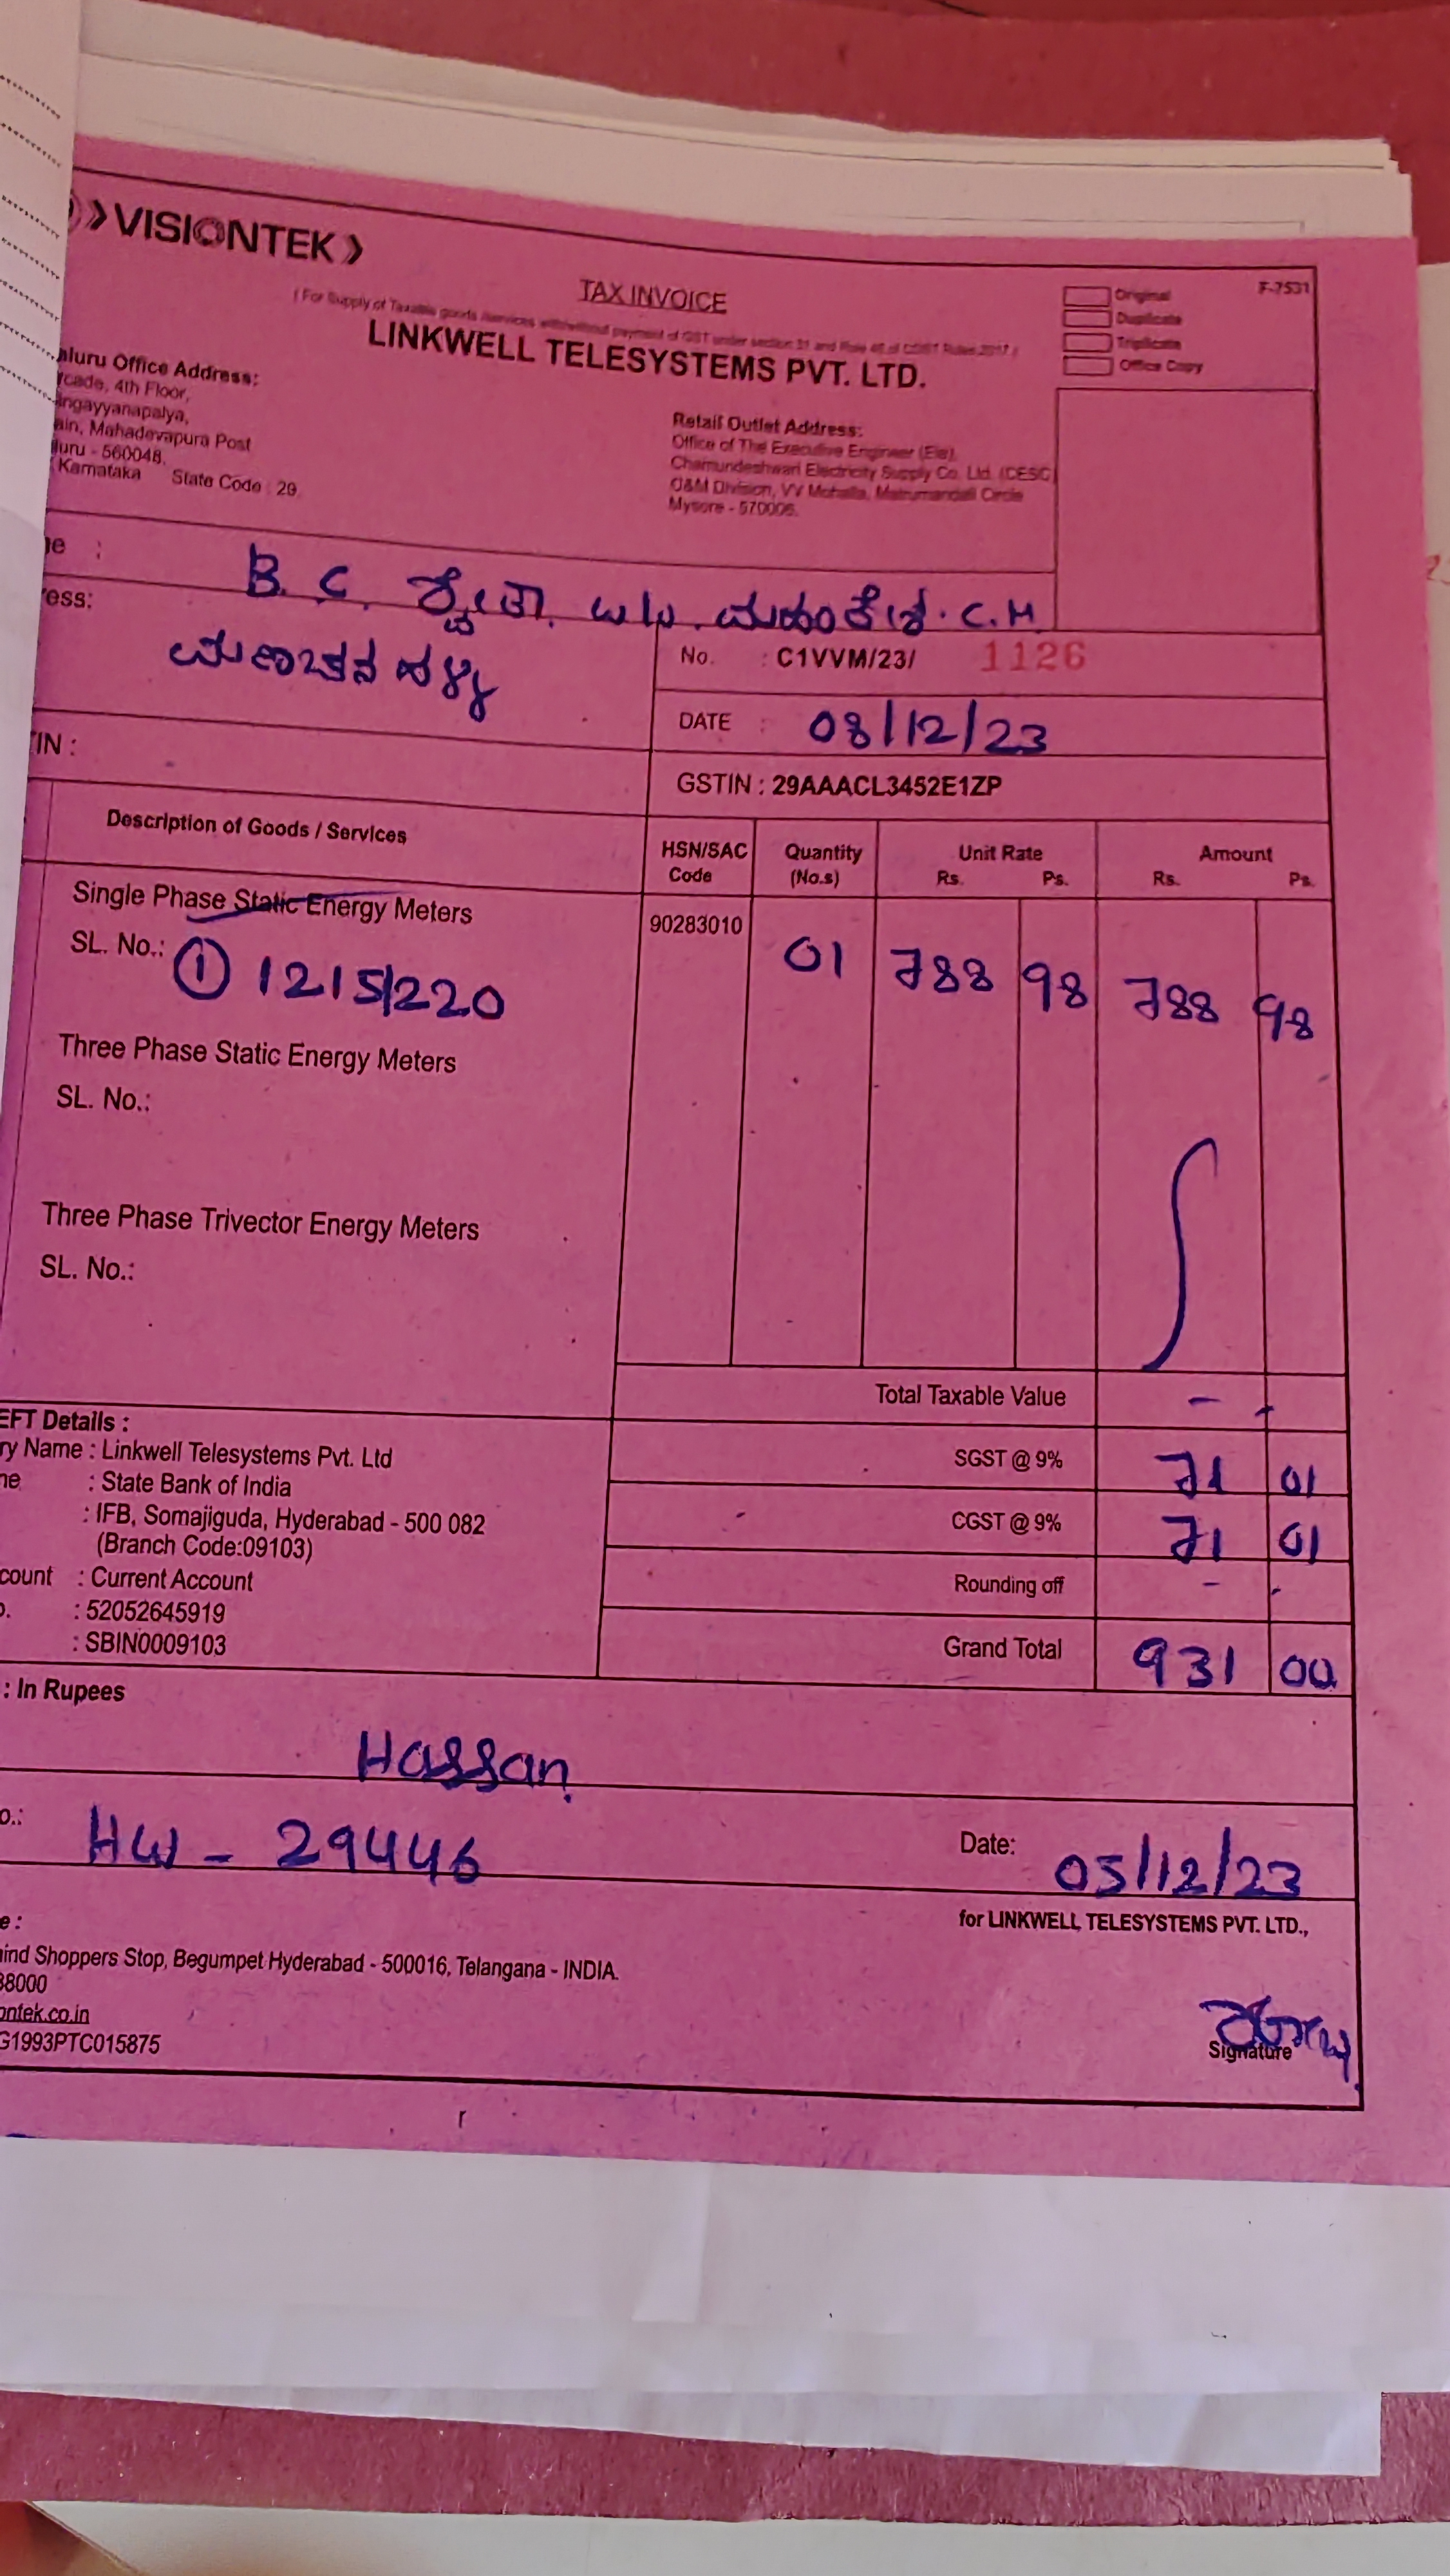 VISIONTEK
TAX INVOICE
( For Supply of Taxable goods /services with/without payment of GST under section 31 and Rule 46 of CGST Rules 2017 )
LINKWELL TELESYSTEMS PVT. LTD.
F-7531
Original
Duplicate
Triplicate
Office Copy
aluru Office Address:
rcade, 4th Floor,
ingayyanapalya,
ain, Mahadevapura Post
luru - 560048.
Karnataka State Code : 29
Retail Outlet Address:
Office of The Executive Engineer (Ele),
Chamundeshwari Electricity Supply Co. Ltd. (CESC)
O&M Division, VV Mohalla, Matrumandali Circle
Mysore - 570006.
ne : B. C. ಶ್ವೇತಾ. C.H
ress:
No. : C1VVM/23/ 1126
DATE : 08/12/23
TIN :
GSTIN : 29AAACL3452E1ZP
Description of Goods / Services HSN/SAC Code Quantity (No.s) Unit Rate Rs. Ps. Amount Rs. Ps.
Single Phase Static Energy Meters 90283010 01 788 98 788 98
SL. No.: ① 12151220
Three Phase Static Energy Meters
SL. No.:
Three Phase Trivector Energy Meters
SL. No.:
Total Taxable Value -
EFT Details :
ry Name : Linkwell Telesystems Pvt. Ltd
me : State Bank of India
: IFB, Somajiguda, Hyderabad - 500 082
(Branch Code:09103)
count : Current Account
o. : 52052645919
: SBIN0009103
SGST @ 9% 71 01
CGST @ 9% 71 01
Rounding off - -
Grand Total 931 00
: In Rupees
Hassan.
o.: HW - 29446
Date: 05/12/23
for LINKWELL TELESYSTEMS PVT. LTD.,
e :
hind Shoppers Stop, Begumpet Hyderabad - 500016, Telangana - INDIA.
38000
ontek.co.in
G1993PTC015875
Signature